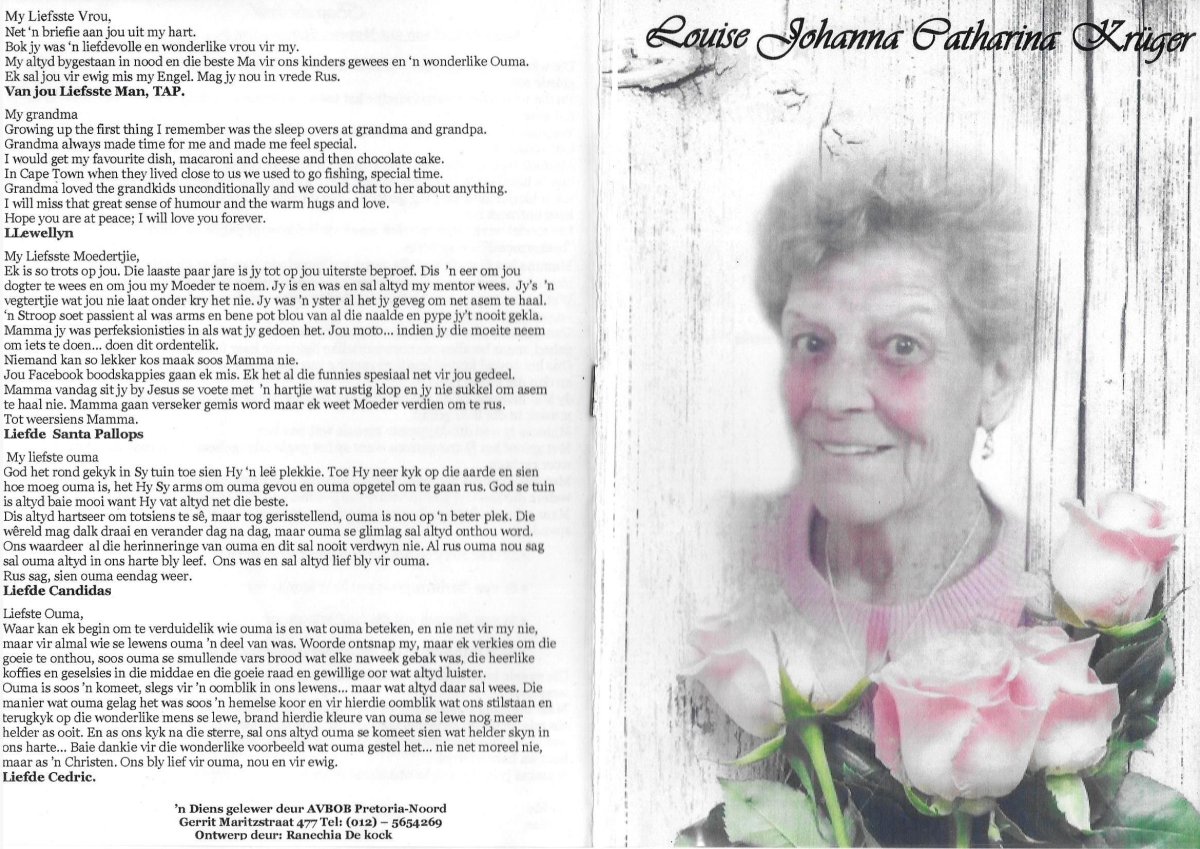 My Liefsste Vrou,
Net ‘n briefie aan jou uit my hart.
Bok jy was ‘n liefdevolle en wonderlike vrou vir my.
My altyd bygestaan in nood en die beste Ma vir ons kinders gewees en ‘n wonderlike Ouma.
Ek sal jou vir ewig mis my Engel. Mag jy nou in vrede Rus.
Van jou Liefsste Man, TAP.
My grandma
Growing up the first thing I remember was the sleep overs at grandma and grandpa.
Grandma always made time for me and made me feel special.
I would get my favourite dish, macaroni and cheese and then chocolate cake.
In Cape Town when they lived close to us we used to go fishing, special time.
Grandma loved the grandkids unconditionally and we could chat to her about anything.
I will miss that great sense of humour and the warm hugs and love.
Hope you are at peace; I will love you forever.
LLewellyn
My Liefsste Moedertjie,
Ek is so trots op jou. Die laaste paar jare is jy tot op jou uiterste beproef. Dis 'n eer om jou
dogter te wees en om jou my Moeder te noem. Jy is en was en sal altyd my mentor wees. Jy’s 'n
vegtertjie wat jou nie laat onder kry het nie. Jy was 'n yster al het jy geveg om net asem te haal.
‘n Stroop soet passient al was arms en bene pot blou van al die naalde en pype jy't nooit gekla.
Mamma jy was perfeksionisties in als wat jy gedoen het. Jou moto... indien jy die moeite neem
om iets te doen... doen dit ordentelik.
Niemand kan so lekker kos maak soos Mamma nie.
Jou Facebook boodskappies gaan ek mis. Ek het al die funnies spesiaal net vir jou gedeel.
Mamma vandag sit jy by Jesus se voete met 'n hartjie wat rustig klop en jy nie sukkel om asem
te haal nie. Mamma gaan verseker gemis word maar ek weet Moeder verdien om te rus.
Tot weersiens Mamma.
Liefde Santa Pallops
My liefste ouma
God het rond gekyk in Sy tuin toe sien Hy ‘n leë plekkie. Toe Hy neer kyk op die aarde en sien
hoe moeg ouma is, het Hy Sy arms om ouma gevou en ouma opgetel om te gaan rus. God se tuin
is altyd baie mooi want Hy vat altyd net die beste.
Dis altyd hartseer om totsiens te sê, maar tog gerisstellend, ouma is nou op ‘n beter plek. Die
wêreld mag dalk draai en verander dag na dag, maar ouma se glimlag sal altyd onthou word.
Ons waardeer al die herinneringe van ouma en dit sal nooit verdwyn nie. Al rus ouma nou sag
sal ouma altyd in ons harte bly leef. Ons was en sal altyd lief bly vir ouma.
Rus sag, sien ouma eendag weer.
Liefde Candidas
Liefste Ouma,
Waar kan ek begin om te verduidelik wie ouma is en wat ouma beteken, en nie net vir my nie,
maar vir almal wie se lewens ouma 'n deel van was. Woorde ontsnap my, maar ek verkies om die
goeie te onthou, soos ouma se smullende vars brood wat elke naweek gebak was, die heerlike
koffies en geselsies in die middae en die goeie raad en gewillige oor wat altyd luister.
Ouma is soos 'n komeet, slegs vir 'n oomblik in ons lewens... maar wat altyd daar sal wees. Die
manier wat ouma gelag het was soos 'n hemelse koor en vir hierdie oomblik wat ons stilstaan en
terugkyk op die wonderlike mens se lewe, brand hierdie kleure van ouma se lewe nog meer
helder as ooit. En as ons kyk na die sterre, sal ons altyd ouma se komeet sien wat helder skyn in
ons harte... Baie dankie vir die wonderlike voorbeeld wat ouma gestel het... nie net moreel nie,
maar as 'n Christen. Ons bly lief vir ouma, nou en vir ewig.
Liefde Cedric.
'n Diens gelewer deur AVBOB Pretoria-Noord
Gerrit Maritzstraat 477 Tel: (012) – 5654269
Ontwerp deur: Ranechia De kock
Louise Johanna Catharina Krüger